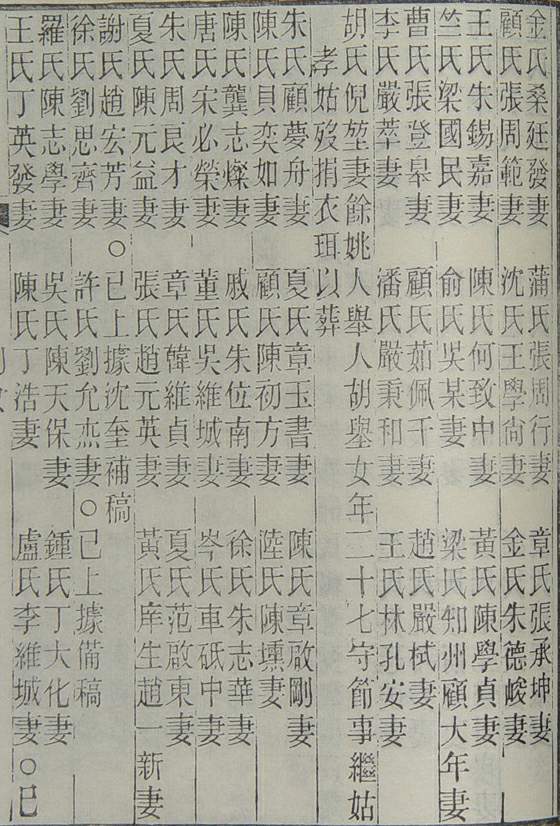 金氏桑廷發妻 蒲氏張周行妻 章氏張承坤妻
顧氏張周範妻 沈氏王學尙妻 金氏朱德峻妻
王氏朱錫嘉妻 陳氏何致中妻 黃氏陳學貞妻
竺氏梁國民妻 俞氏吳某妻 梁氏知州顧大年妻
曹氏張登皋妻 顧氏茹佩千妻 趙氏嚴栻妻
李氏嚴萃妻 潘氏嚴秉和妻 王氏林孔安妻
胡氏倪堃妻餘姚人舉人胡舉女年二十七守節事繼姑
孝姑歿捐衣珥以葬
朱氏顧夢舟妻 夏氏章玉書妻 陳氏章啟剛妻
陳氏貝奕如妻 顧氏陳初方妻 陸氏陳壎妻
陳氏龔志燦妻 戚氏朱位南妻 徐氏朱志華妻
唐氏宋必榮妻 董氏吳維城妻 岑氏車砥中妻
朱氏周良才妻 章氏韓維貞妻 夏氏范啟東妻
夏氏陳元益妻 張氏趙元英妻 黃氏庠生趙一新妻
謝氏趙宏芳妻○已上據沈奎補稿
徐氏劉思齊妻 許氏劉允杰妻○已上據備稿
羅氏陳志學妻 吳氏陳天保妻 鍾氏丁大化妻
王氏丁英發妻 陳氏丁浩妻 盧氏李維城妻○已